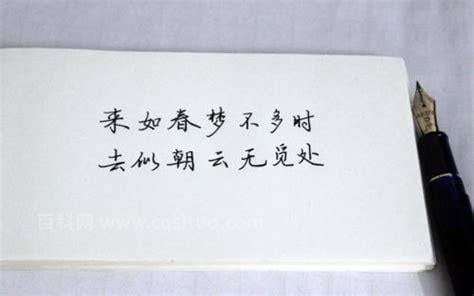 来如春梦不多时
去似朝云无觅处
百科网 www.cqsituo.com